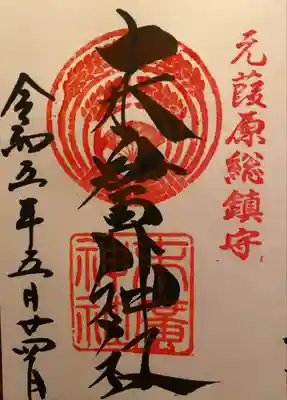 元葭原総鎮守
末廣神社
末廣
神社
令和五年五月廿四日